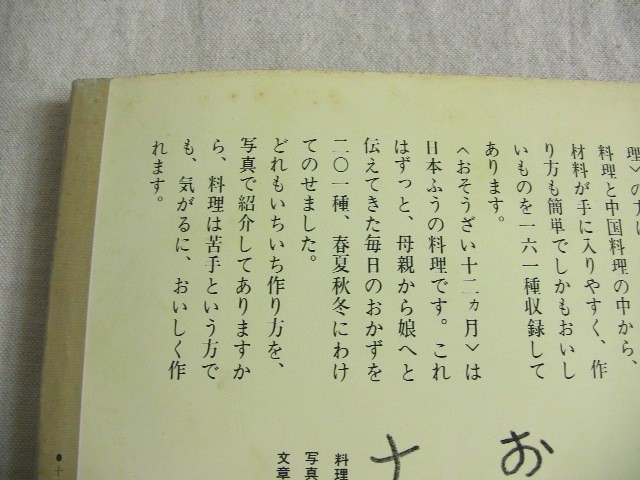 理〉の方は
料理と中国料理の中から、
材料が手に入りやすく、作
り方も簡単でしかもおいし
いものを一六一種収録して
あります。
〈おそうざい十二ヵ月〉は
日本ふうの料理です。これ
はずっと、母親から娘へと
伝えてきた毎日のおかずを
二〇一種、春夏秋冬にわけ
てのせました。
どれもいちいち作り方を、
写真で紹介してありますか
ら、料理は苦手という方で
も、気がるに、おいしく作
れます。
お
十
料理
写真
文章
●十